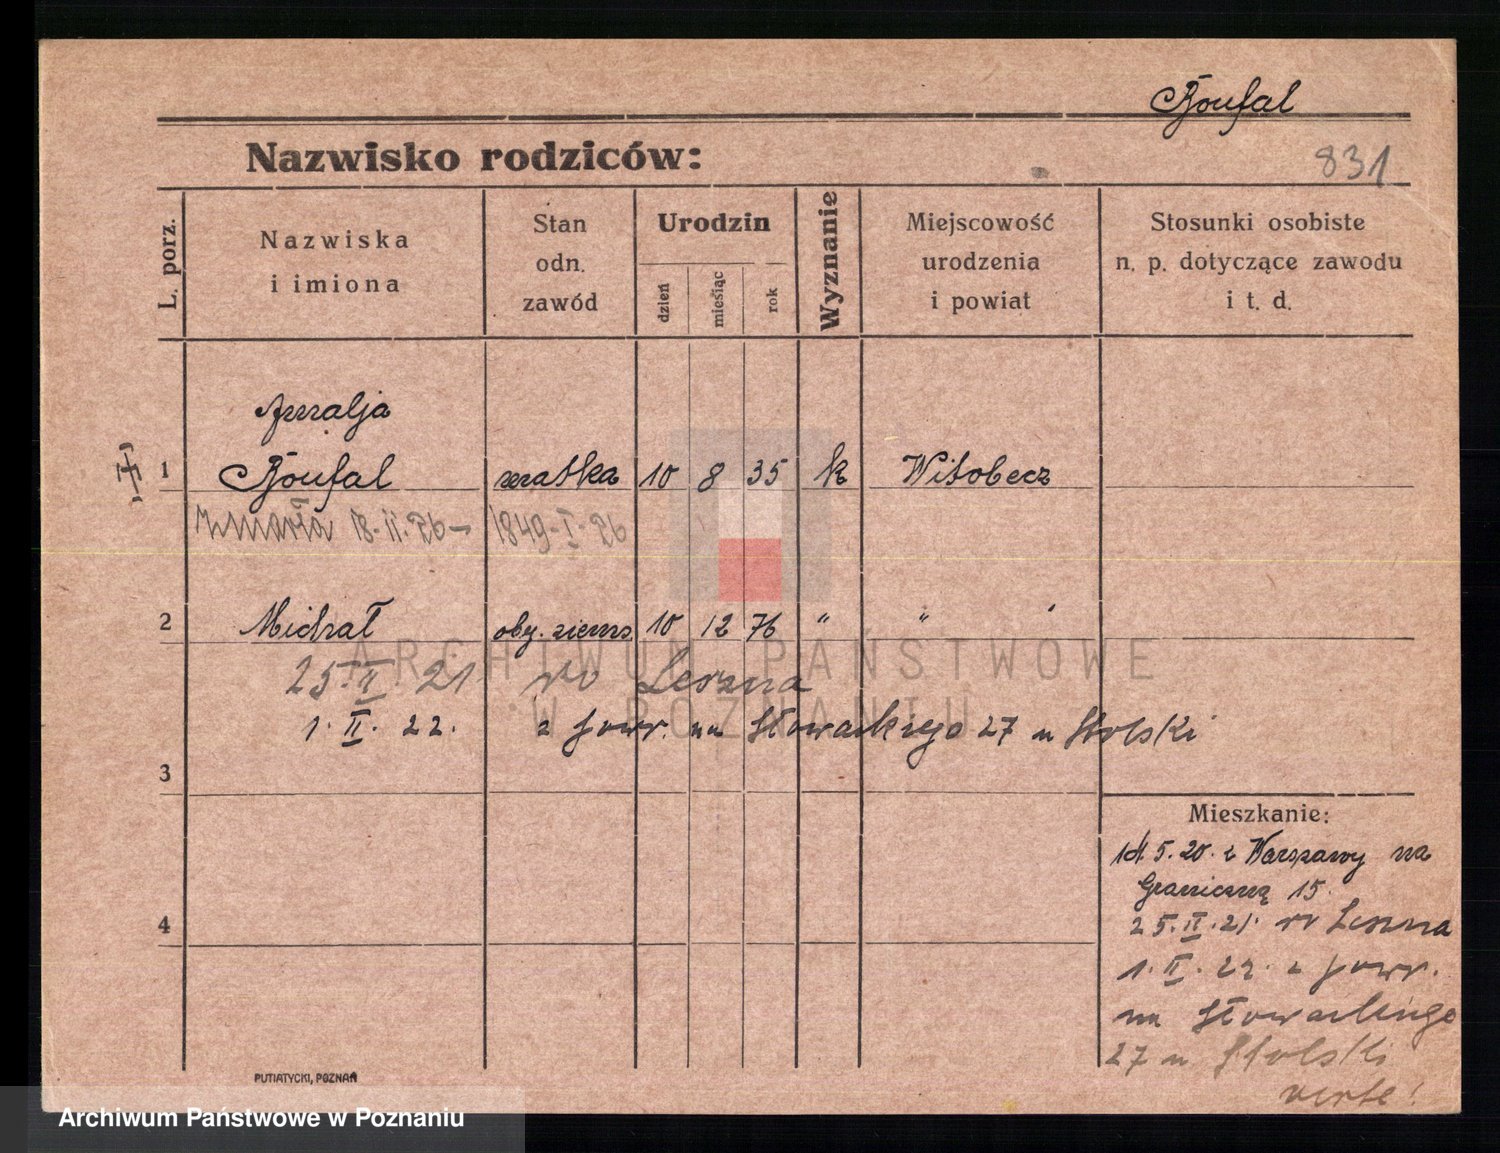 Roufal
831
Nazwisko rodziców:
L. porz.
Nazwiska
i imiona
Stan
odn.
zawód
Urodzin
dzień
miesiąc
rok
Wyznanie
Miejscowość
urodzenia
i powiat
Stosunki osobiste
n. p. dotyczące zawodu
i t. d.
Amalja
1 Roufal matka 10 8 35 k Witobecz
Zmarła 18-II-26 – 1849-I-26
2 Michał oby. ziems. 10 12 76 " " "
25.II.21 do Leszna
1.II.22. z powr. na Słowackiego 27 u Stolski
3
4
Mieszkanie:
14.5.20. z Warszawy na
Graniczną 15.
25.II.21. do Leszna
1.II.22. z powr.
na Słowackiego
27 u Stolski
verte!
PUTIATYCKI, POZNAŃ
ARCHIWUM PAŃSTWOWE
W POZNANIU
Archiwum Państwowe w Poznaniu